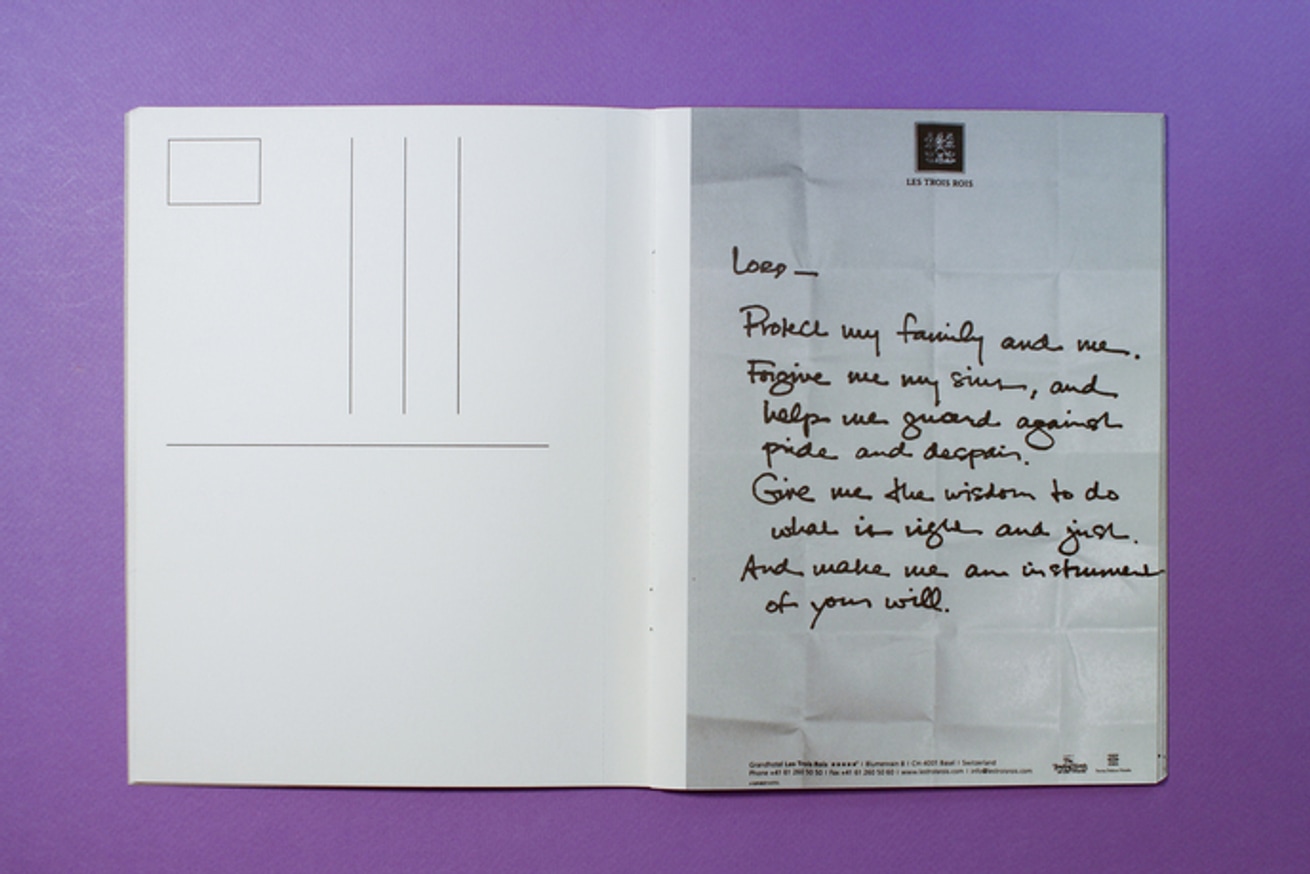 LES TROIS ROIS
Lord —
Protect my family and me.
Forgive me my sins, and
help me guard against
pride and despair.
Give me the wisdom to do
what is right and just.
And make me an instrument
of your will.
Grandhotel Les Trois Rois ★★★★★ I Blumenrain 8 I CH-4001 Basel I Switzerland
Phone +41 61 260 50 50 I Fax +41 61 260 50 60 I www.lestroisrois.com I info@lestroisrois.com